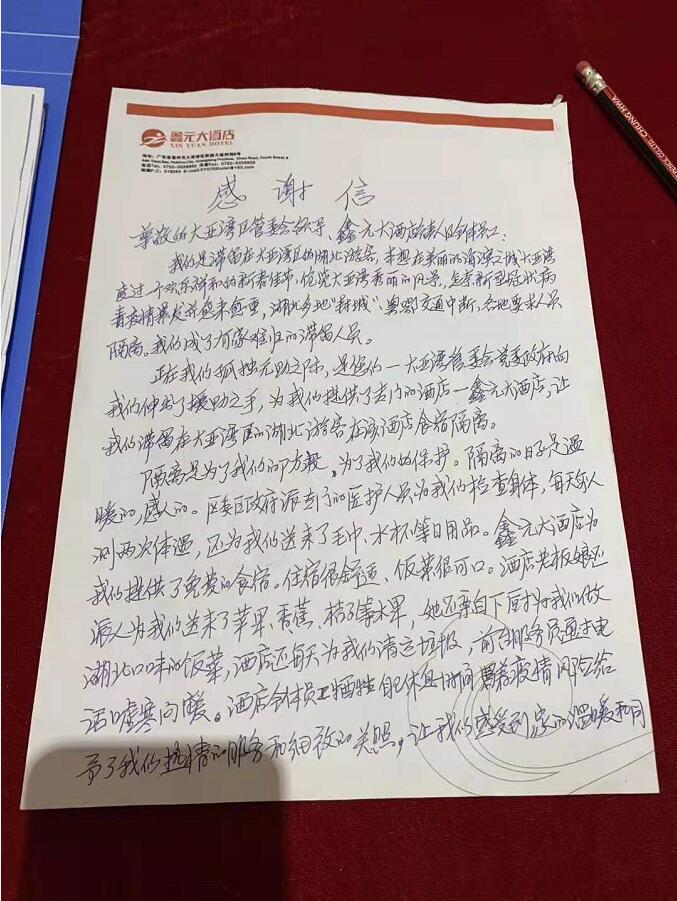 鑫元大酒店
XIN YUAN HOTEL
感谢信
尊敬的大亚湾区管委会领导、鑫元大酒店全体员工:
我们是滞留在大亚湾区的湖北游客,本想在美丽的海滨之城大亚湾
度过一个欢乐祥和的新春佳节,饱览大亚湾秀丽的风景,怎奈新型冠状病
毒疫情暴发并愈来愈重,湖北多地“封城”,粤鄂交通中断,各地要求人员
隔离。我们成了有家难归的滞留人员。
正在我们孤独无助之际,是您们一大亚湾管委会党委政府向
我们伸出了援助之手,为我们提供了专门的酒店一鑫元大酒店,让
我们滞留在大亚湾区的湖北游客在该酒店食宿隔离。
隔离是为了我们的防疫,为了我们的保护。隔离的日子是温
暖的,感人的。区委区政府派专门的医护人员为我们检查身体,每天
测两次体温,还为我们送来了毛巾、水杯等日用品。鑫元大酒店为
我们提供了免费的食宿。住宿很舒适、饭菜很可口。酒店老板娘还
派人为我们送来了苹果、香蕉、桔子等水果,她还亲自下厨为我们做
湖北口味的饭菜,酒店还每天为我们清运垃圾,前台服务员通过电
话嘘寒问暖。酒店全体员工牺牲自己休息时间冒着疫情风险给
予了我们热情的服务和细致的关照,让我们感受到家的温暖和同
CHUNG HWA